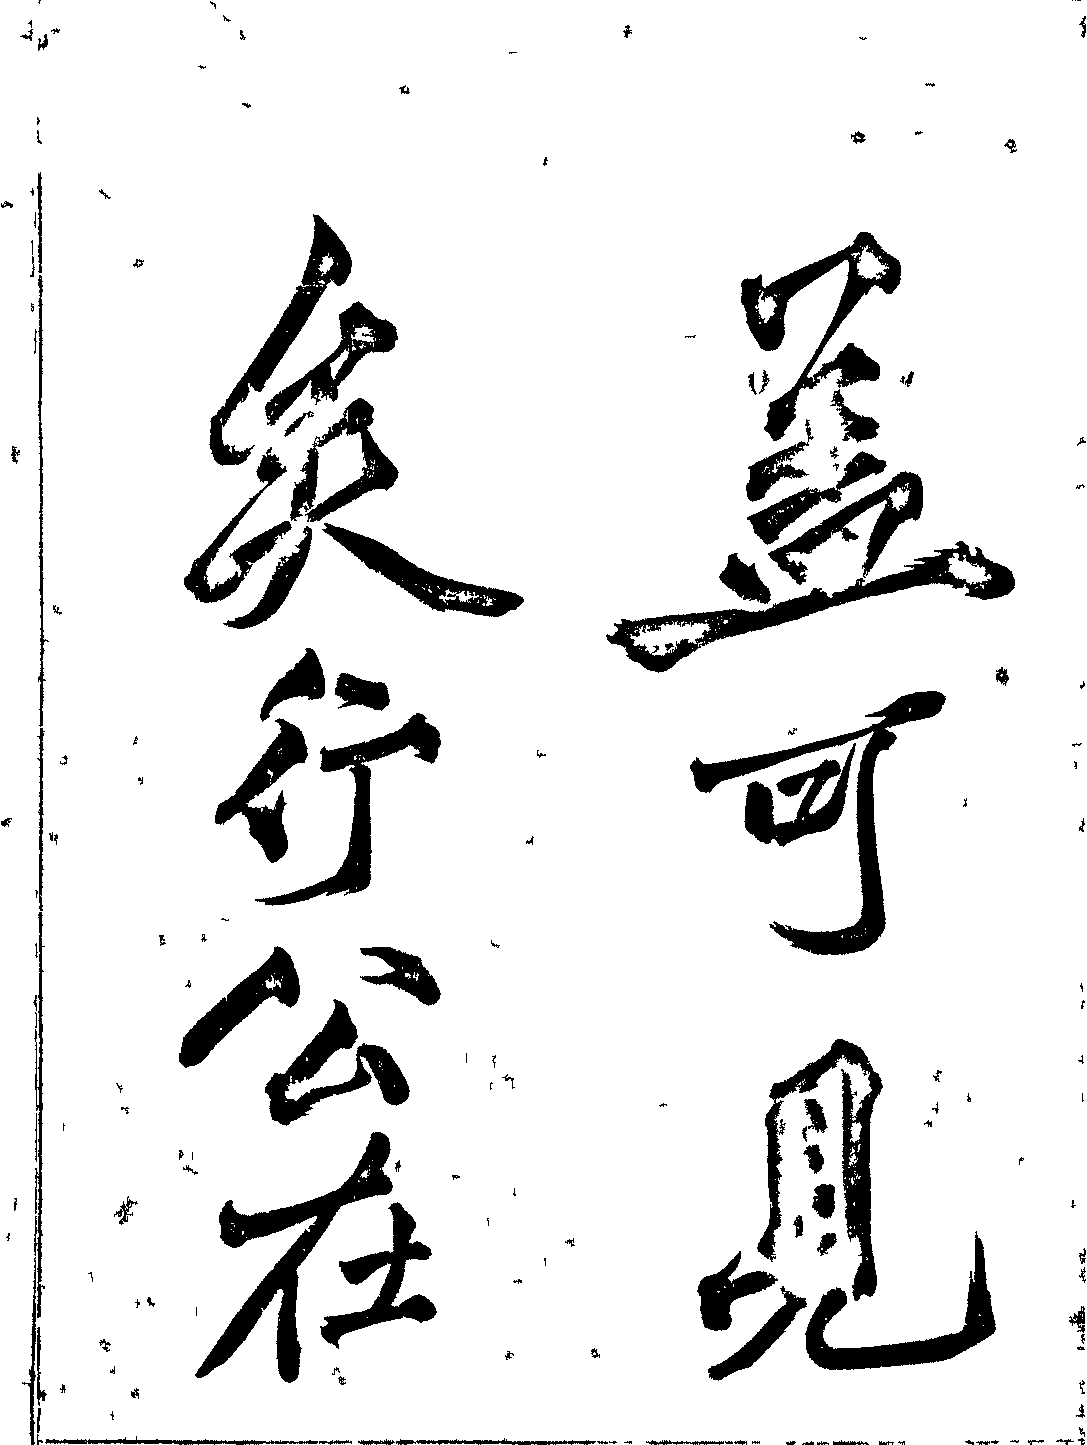 蓋可見
矣行公在